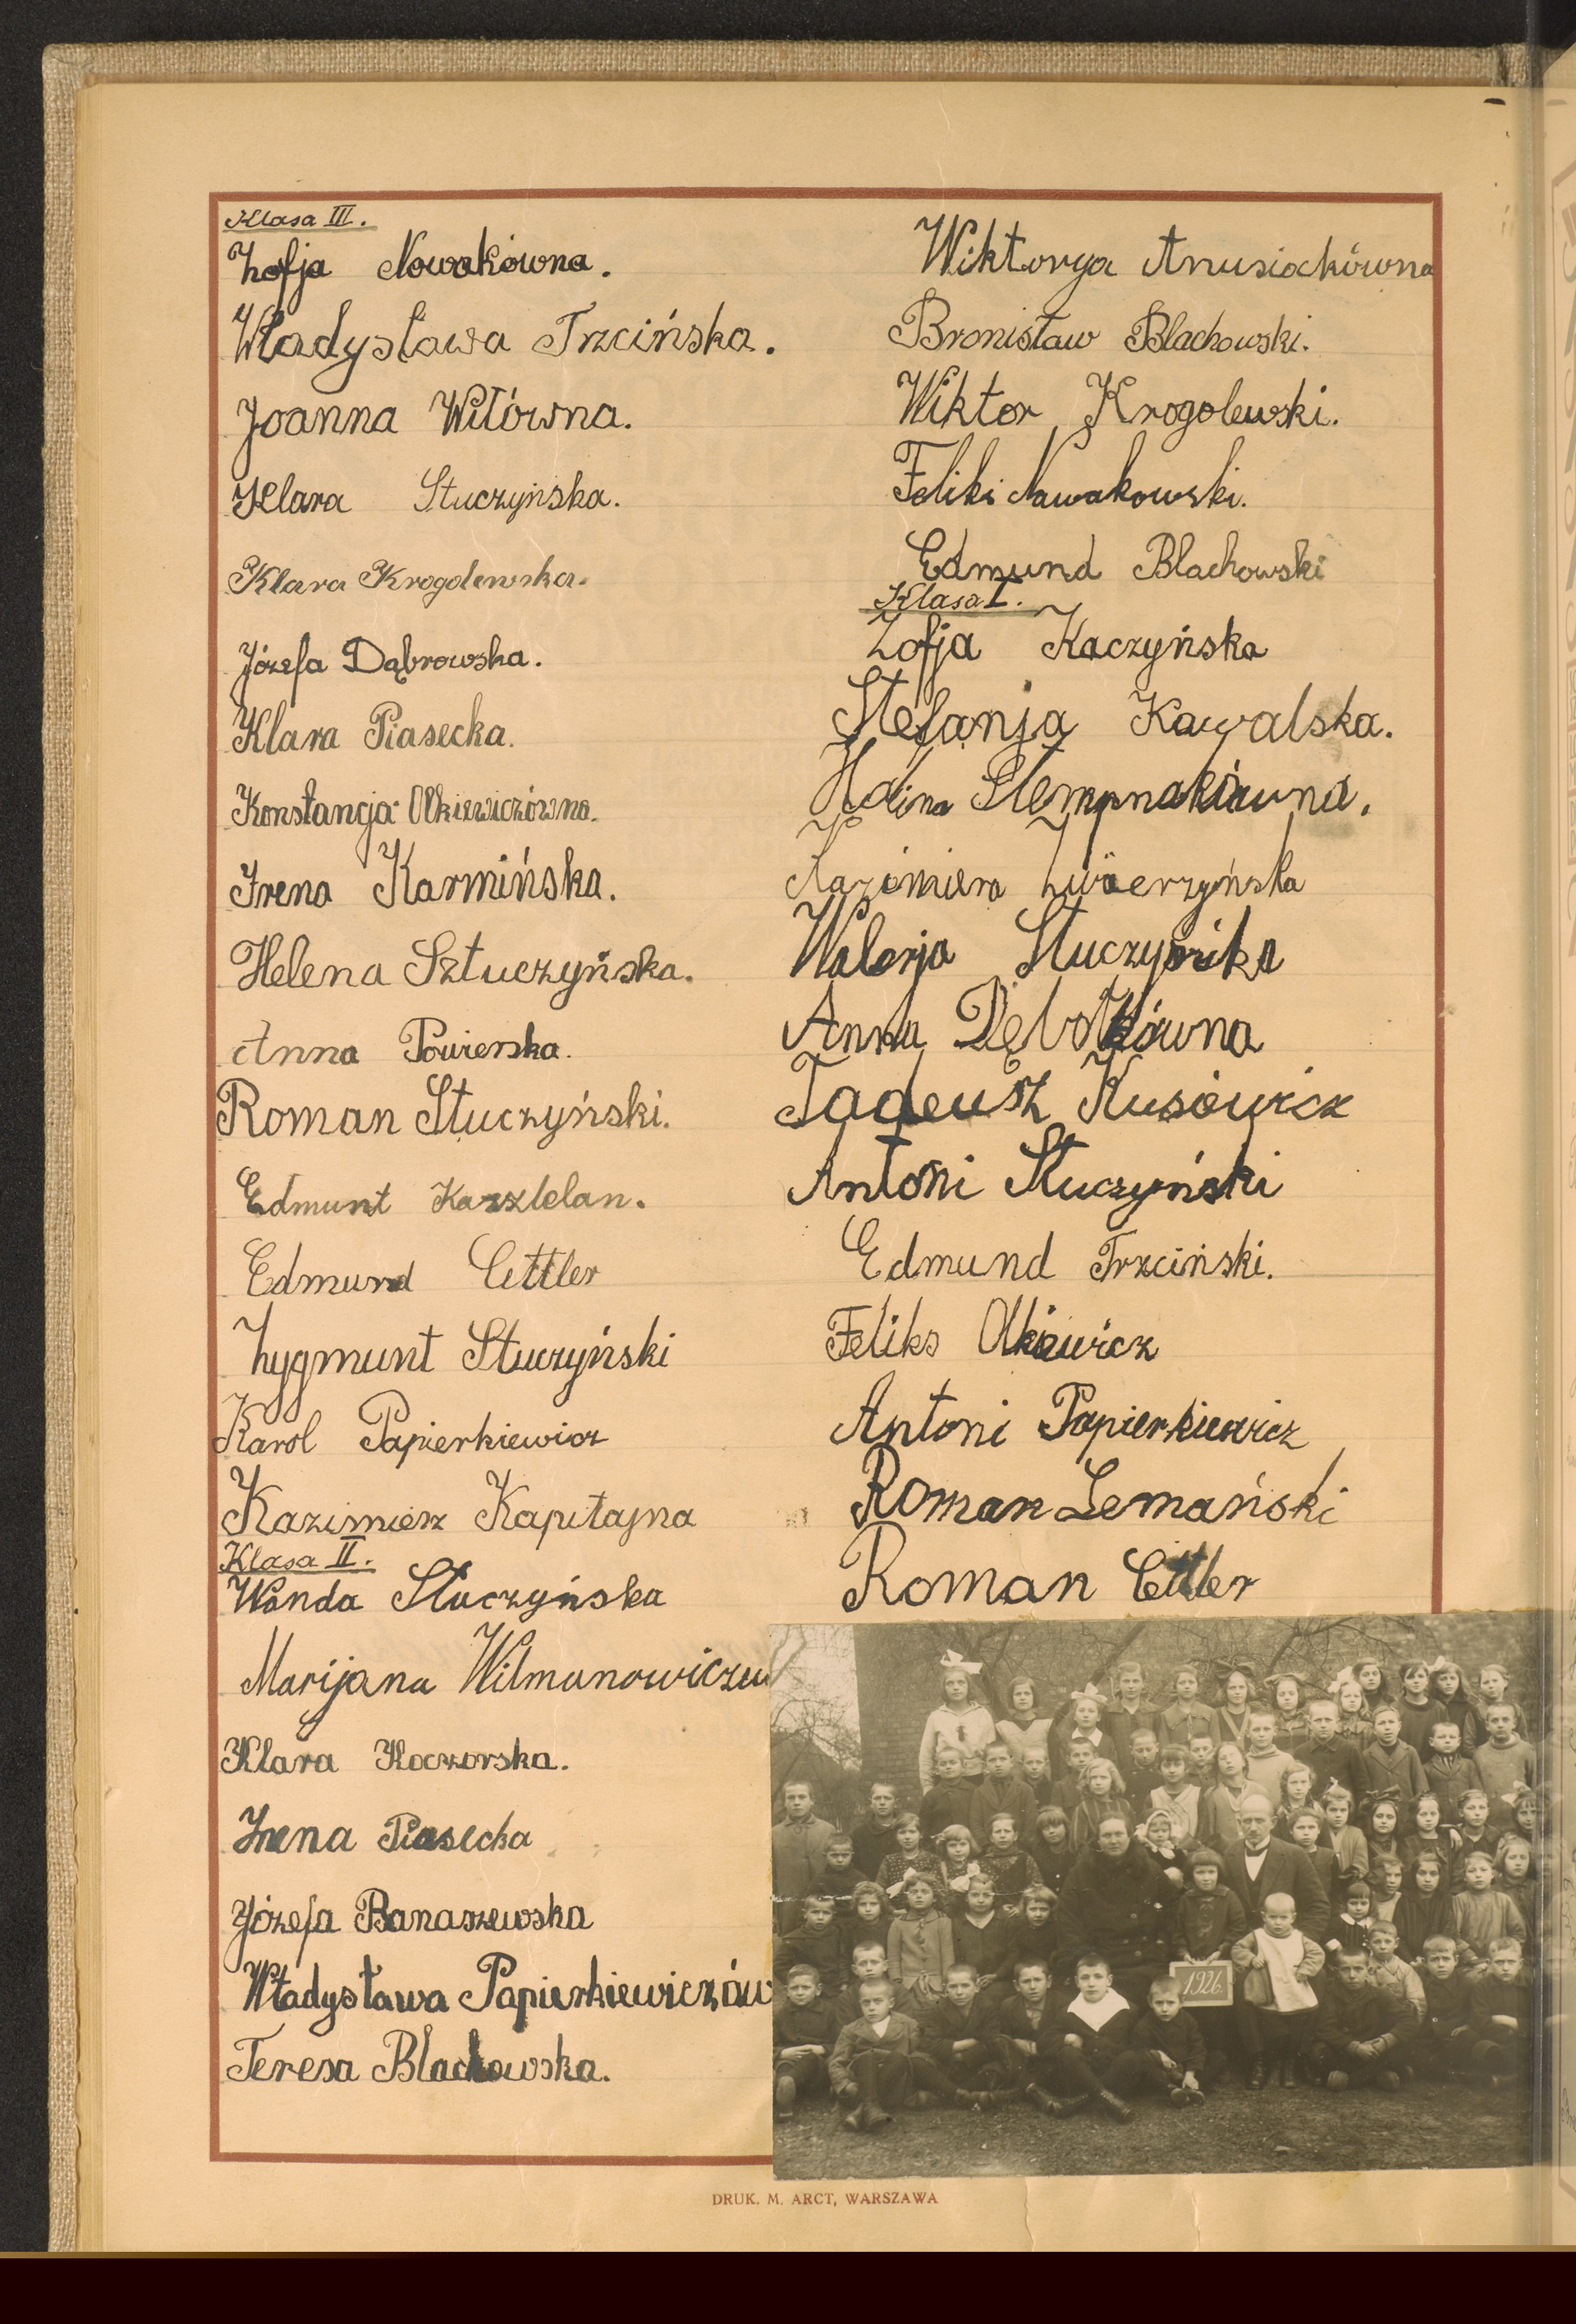 Klasa III.
Zofja Nowakówna.
Władysława Trzcińska.
Joanna Witówna.
Klara Stuczyńska.
Klara Krogolewska.
Józefa Dąbrowska.
Klara Piasecka.
Konstancja Olkiewiczówna.
Irena Karmińska.
Helena Sztuczyńska.
Anna Powierska.
Roman Stuczyński.
Edmunt Kasztelan.
Edmund Cettler
Zygmunt Stuczyński
Karol Papierkiewicz
Kazimierz Kapitajna
Klasa II.
Wanda Stuczyńska
Marijana Wilmanowiczu
Klara Koczorska.
Irena Piasecka
Józefa Banaszewska
Władysława Papierkiewiczów
Teresa Blachowska.
Wiktorya Anusiakówna
Bronisław Blachowski.
Wiktor Krogolewski.
Feliks Nowakowski.
Edmund Blachowski
Klasa I.
Zofja Kaczyńska
Stefanja Kowalska.
Halina Stempnakówna.
Kazimiera Zwierzyńska
Walerja Stuczyńska
Anna Dębotkówna
Tadeusz Kusowicz
Antoni Stuczyński
Edmund Trzciński.
Feliks Olkiewicz
Antoni Papierkiewicz
Roman Lemański
Roman Cettler
1926.
DRUK. M. ARCT, WARSZAWA